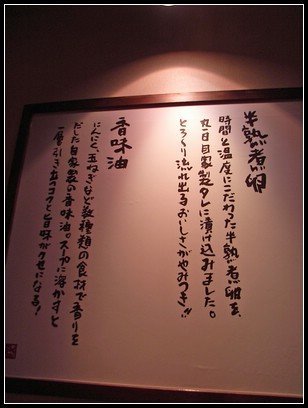 半熟煮卵
時間と温度にこだわった半熟煮卵を、
丸一日自家製タレに漬け込みました。
とろ〜り流れ出るおいしさがやみつき!!
香味油
にんにく、玉ねぎなど数種類の食材で香りを
だした自家製の香味油。スープに溶かすと
一層引き立つコクと旨味がクセになる!